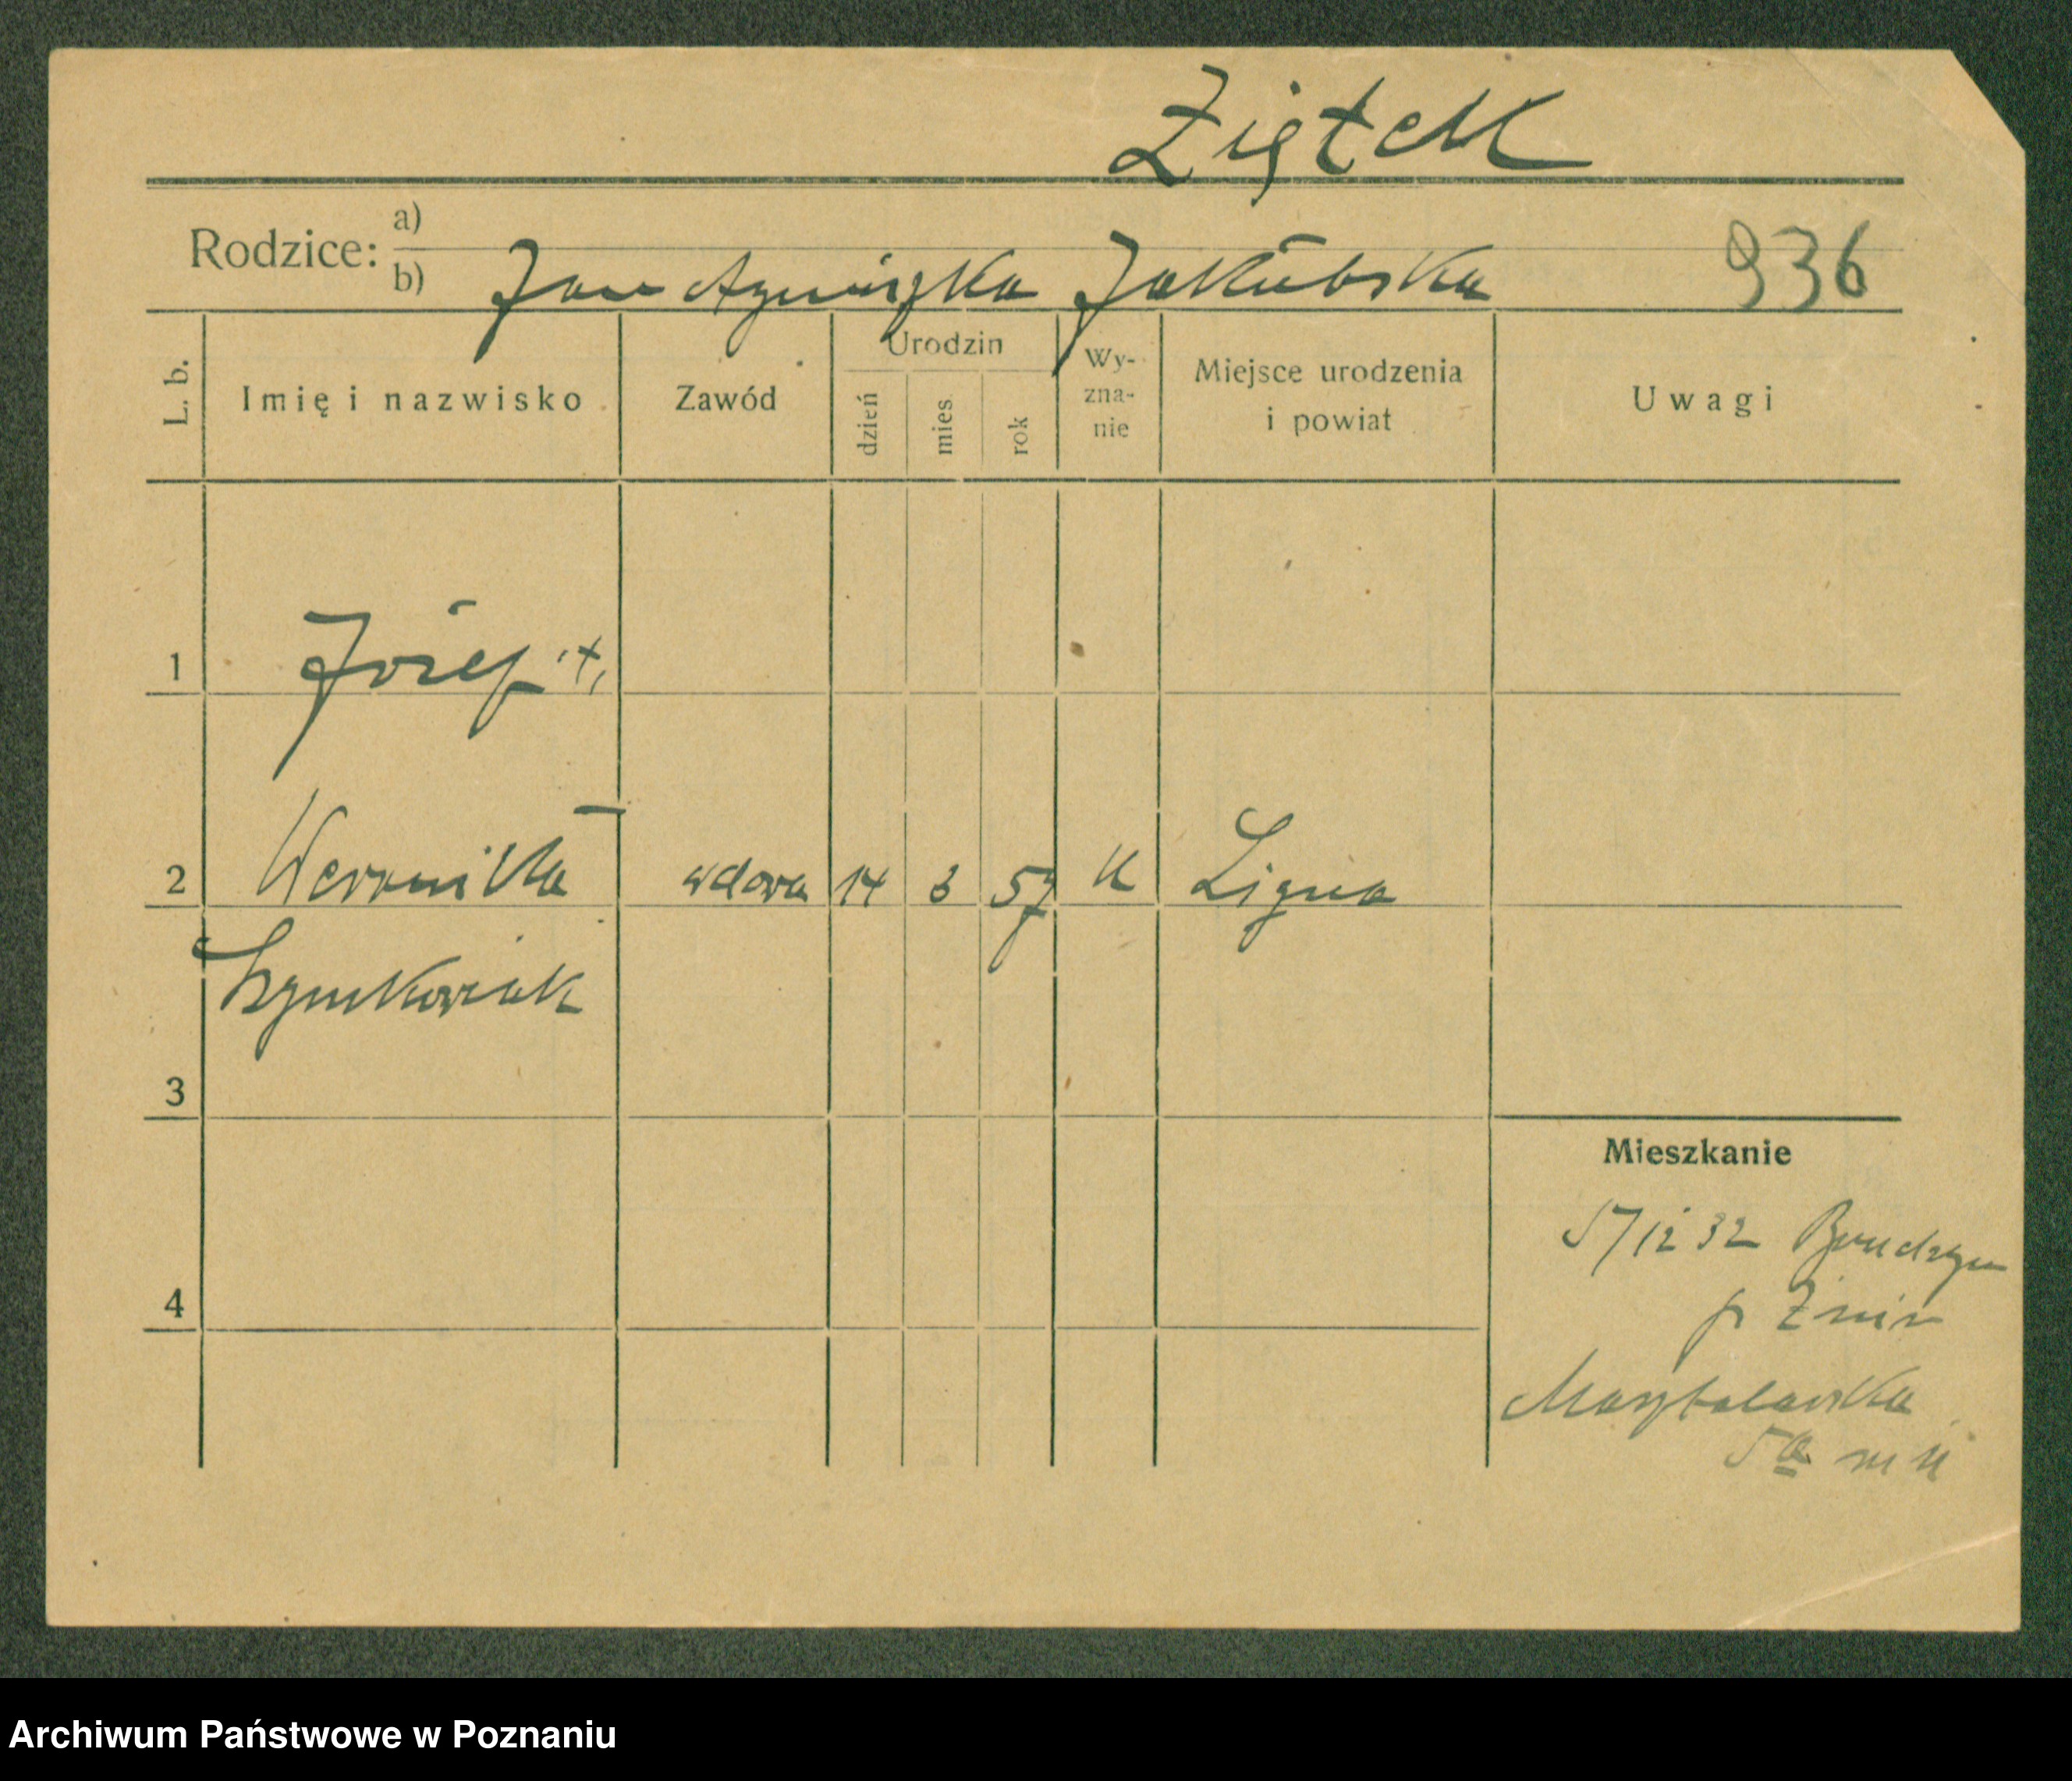 Ziętek
Rodzice: a)
b) Jan Agnieszka Jakubska
936
L. b. Imię i nazwisko Zawód Urodzin dzień mies. rok Wy-zna-nie Miejsce urodzenia i powiat Uwagi
1 Józef
2 Weronika wdowa 14 3 57 K Ligna
Szymkowiak
3
Mieszkanie
5/12 32 Brudzyn
4
p Żnin
Masztalarska
5a m
Archiwum Państwowe w Poznaniu